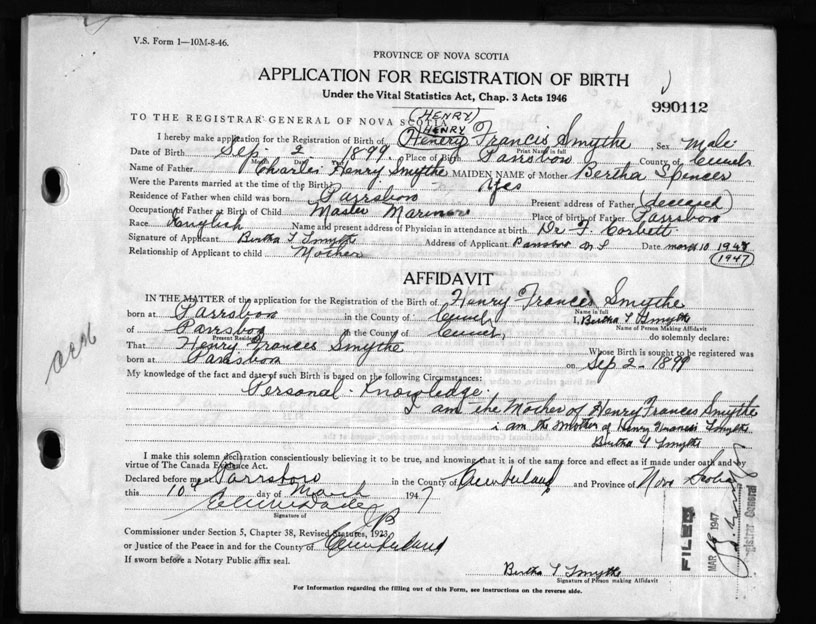 V.S. Form 1—10M-8-46.
PROVINCE OF NOVA SCOTIA
APPLICATION FOR REGISTRATION OF BIRTH
Under the Vital Statistics Act, Chap. 3 Acts 1946
990112
(HENRY)
TO THE REGISTRAR GENERAL OF NOVA SCOTIA
HENRY
I hereby make application for the Registration of Birth of Henery Francis Smythe Sex Male
Print Name in full
Date of Birth Sep. 2 1899. Place of Birth Parrsboro County of Cumb
Month Date
Name of Father Charles Henry Smythe MAIDEN NAME of Mother Bertha Spencer
Were the Parents married at the time of the Birth? Yes
Residence of Father when child was born Parrsboro Present address of Father (deceased)
Occupation of Father at Birth of Child Master Mariner Place of birth of Father Parrsboro
Race English Name and present address of Physician in attendance at birth Dr F. Corbett
Signature of Applicant Bertha Y Smythe Address of Applicant Parrsboro N S Date march 10 1948
Relationship of Applicant to child Mother (1947)
AFFIDAVIT
IN THE MATTER of the application for the Registration of the Birth of Henry Francis Smythe
Name in full
born at Parrsboro in the County of Cumb I, Bertha Y Smythe
Name of Person Making Affidavit
of Parrsboro in the County of Cumb, do solemnly declare:
Present Residence
That Henry Francis Smythe Whose Birth is sought to be registered was
born at Parrsboro on Sep 2 - 1899
My knowledge of the fact and date of such Birth is based on the following Circumstances:
Personal Knowledge.
I am the Mother of Henry Francis Smythe
i am the mother of Henry Francis Smythe
Bertha Y Smythe
I make this solemn declaration conscientiously believing it to be true, and knowing that it is of the same force and effect as if made under oath and by
virtue of The Canada Evidence Act.
Declared before me at Parrsboro in the County of Cumberland and Province of Nova Scotia
this 10th day of March 1947
Signature of
JP
Commissioner under Section 5, Chapter 38, Revised Statutes, 1923
or Justice of the Peace in and for the County of Cumberland
If sworn before a Notary Public affix seal.
Bertha Y Smythe
Signature of Person making Affidavit
For Information regarding the filling out of this Form, see instructions on the reverse side.
FILED
MAR 1947
Registrar General